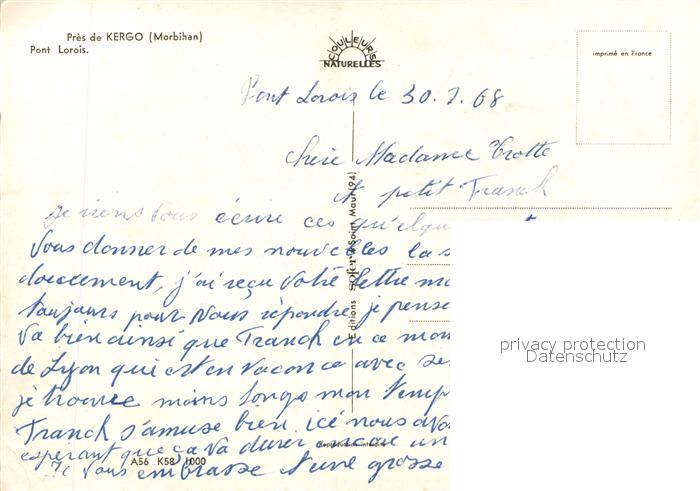 Près de KERGO (Morbihan)
Pont Lorois.
COULEURS
NATURELLES
imprimé en France
Pont Lorois le 30.7.68
Chère Madame Trotte
et petit Franck
je viens vous écrire ces quelqu
vous donner de mes nouvelles la s
doucement, j'ai reçu votre lettre m
toujours pour nous répondre, je pense
va bien ainsi que Franck en ce mom
de Lyon qui est en vacance avec se
je trouve moins longs mon temp
Franck s'amuse bien. icé nous avo
esperant que ça va durer encore un
Je vous embrasse d'une grosse
Editions Sofer Saint Maur (94)
Reproduction interdite
A56 K58 1000
privacy protection
Datenschutz